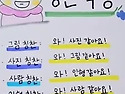 그림 칭찬 : 와! 사진 같아요!
사진 칭찬 : 와! 그림 같아요!
사람 칭찬 : 와! 인형 같아요!
인형 칭찬 : 와!